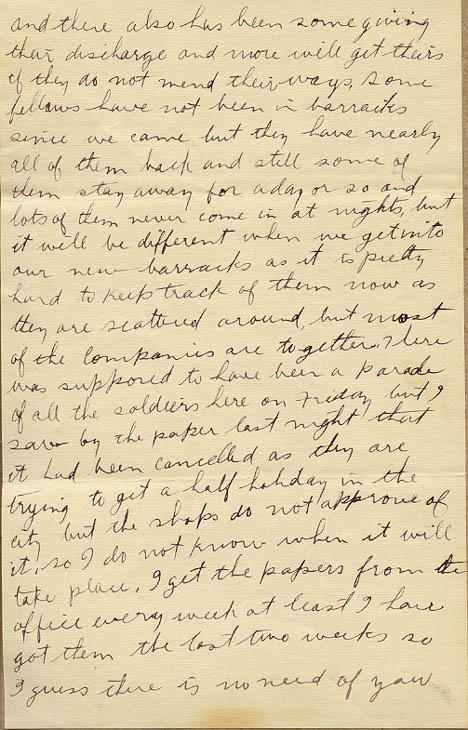 and there also has been some giving
their discharge and more will get theirs
if they do not mend their ways, some
fellows have not been in barracks
since we came but they have nearly
all of them back and still some of
them stay away for a day or so and
lots of them never come in at nights, but
it will be different when we get into
our new barracks as it is pretty
hard to keep track of them now as
they are scattered around, but most
of the Companies are together. There
was supposed to have been a parade
of all the soldiers here on Friday but I
saw by the paper last night that
it had been cancelled as they are
trying to get a half holiday in the
city but the shops do not approve of
it, so I do not know when it will
take place. I get the papers from the
office every week at least I have
got them the last two weeks so
I guess there is no need of your